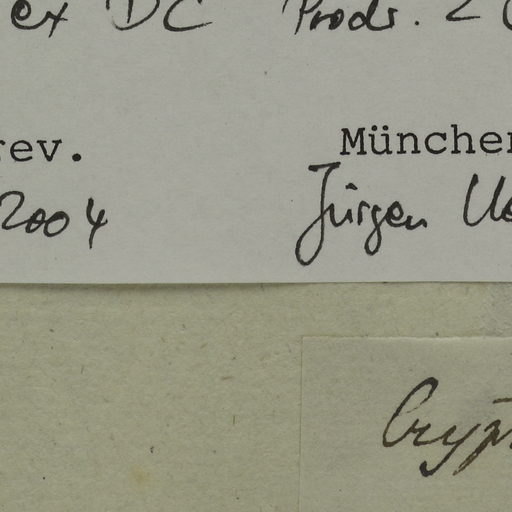 ex DC Prodr. 2
rev. München
2004 Jürgen
Cryp